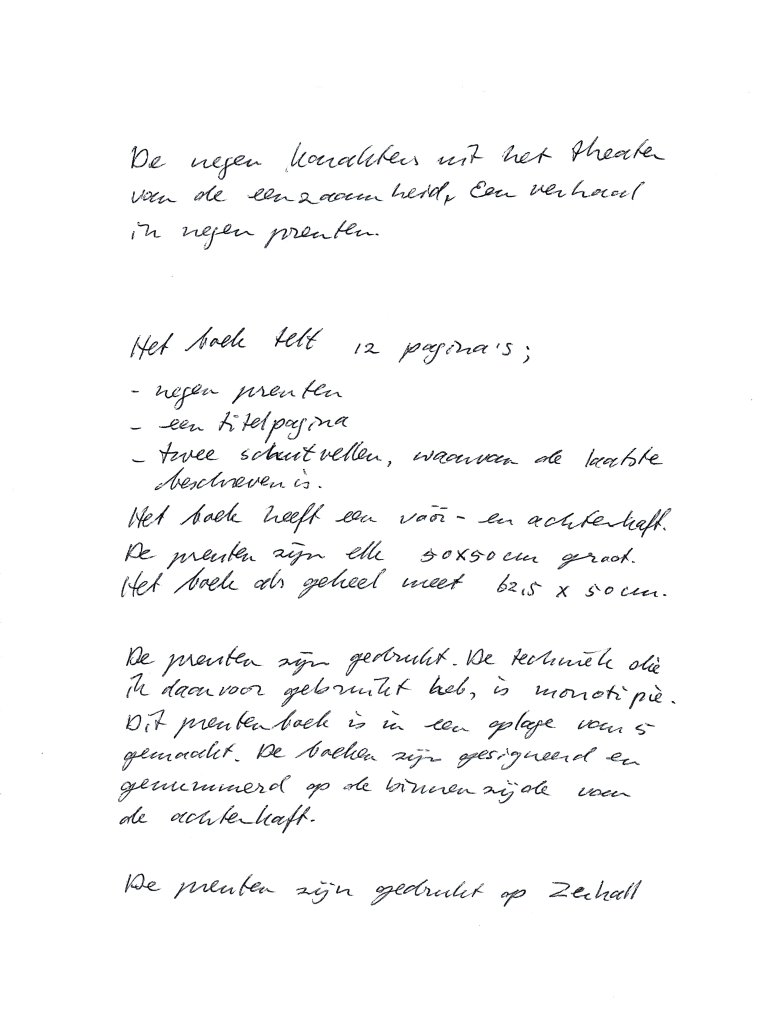 De negen karakters uit het theater
van de eenzaamheid, Een verhaal
in negen prenten.
Het boek telt 12 pagina's;
- negen prenten
- een titelpagina
- twee schutvellen, waarvan de laatste
beschreven is.
Het boek heeft een vóór- en achterkaft.
De prenten zijn elk 50x50 cm groot.
Het boek als geheel meet 62,5 x 50 cm.
De prenten zijn gedrukt. De techniek die
ik daarvoor gebruikt heb, is monotipie.
Dit prentenboek is in een oplage van 5
gemaakt. De boeken zijn gesigneerd en
genummerd op de binnenzijde van
de achterkaft.
De prenten zijn gedrukt op Zerkall